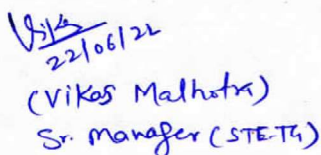 Vikas
22/06/22
(Vikas Malhotra)
Sr. Manager (STE-TG)